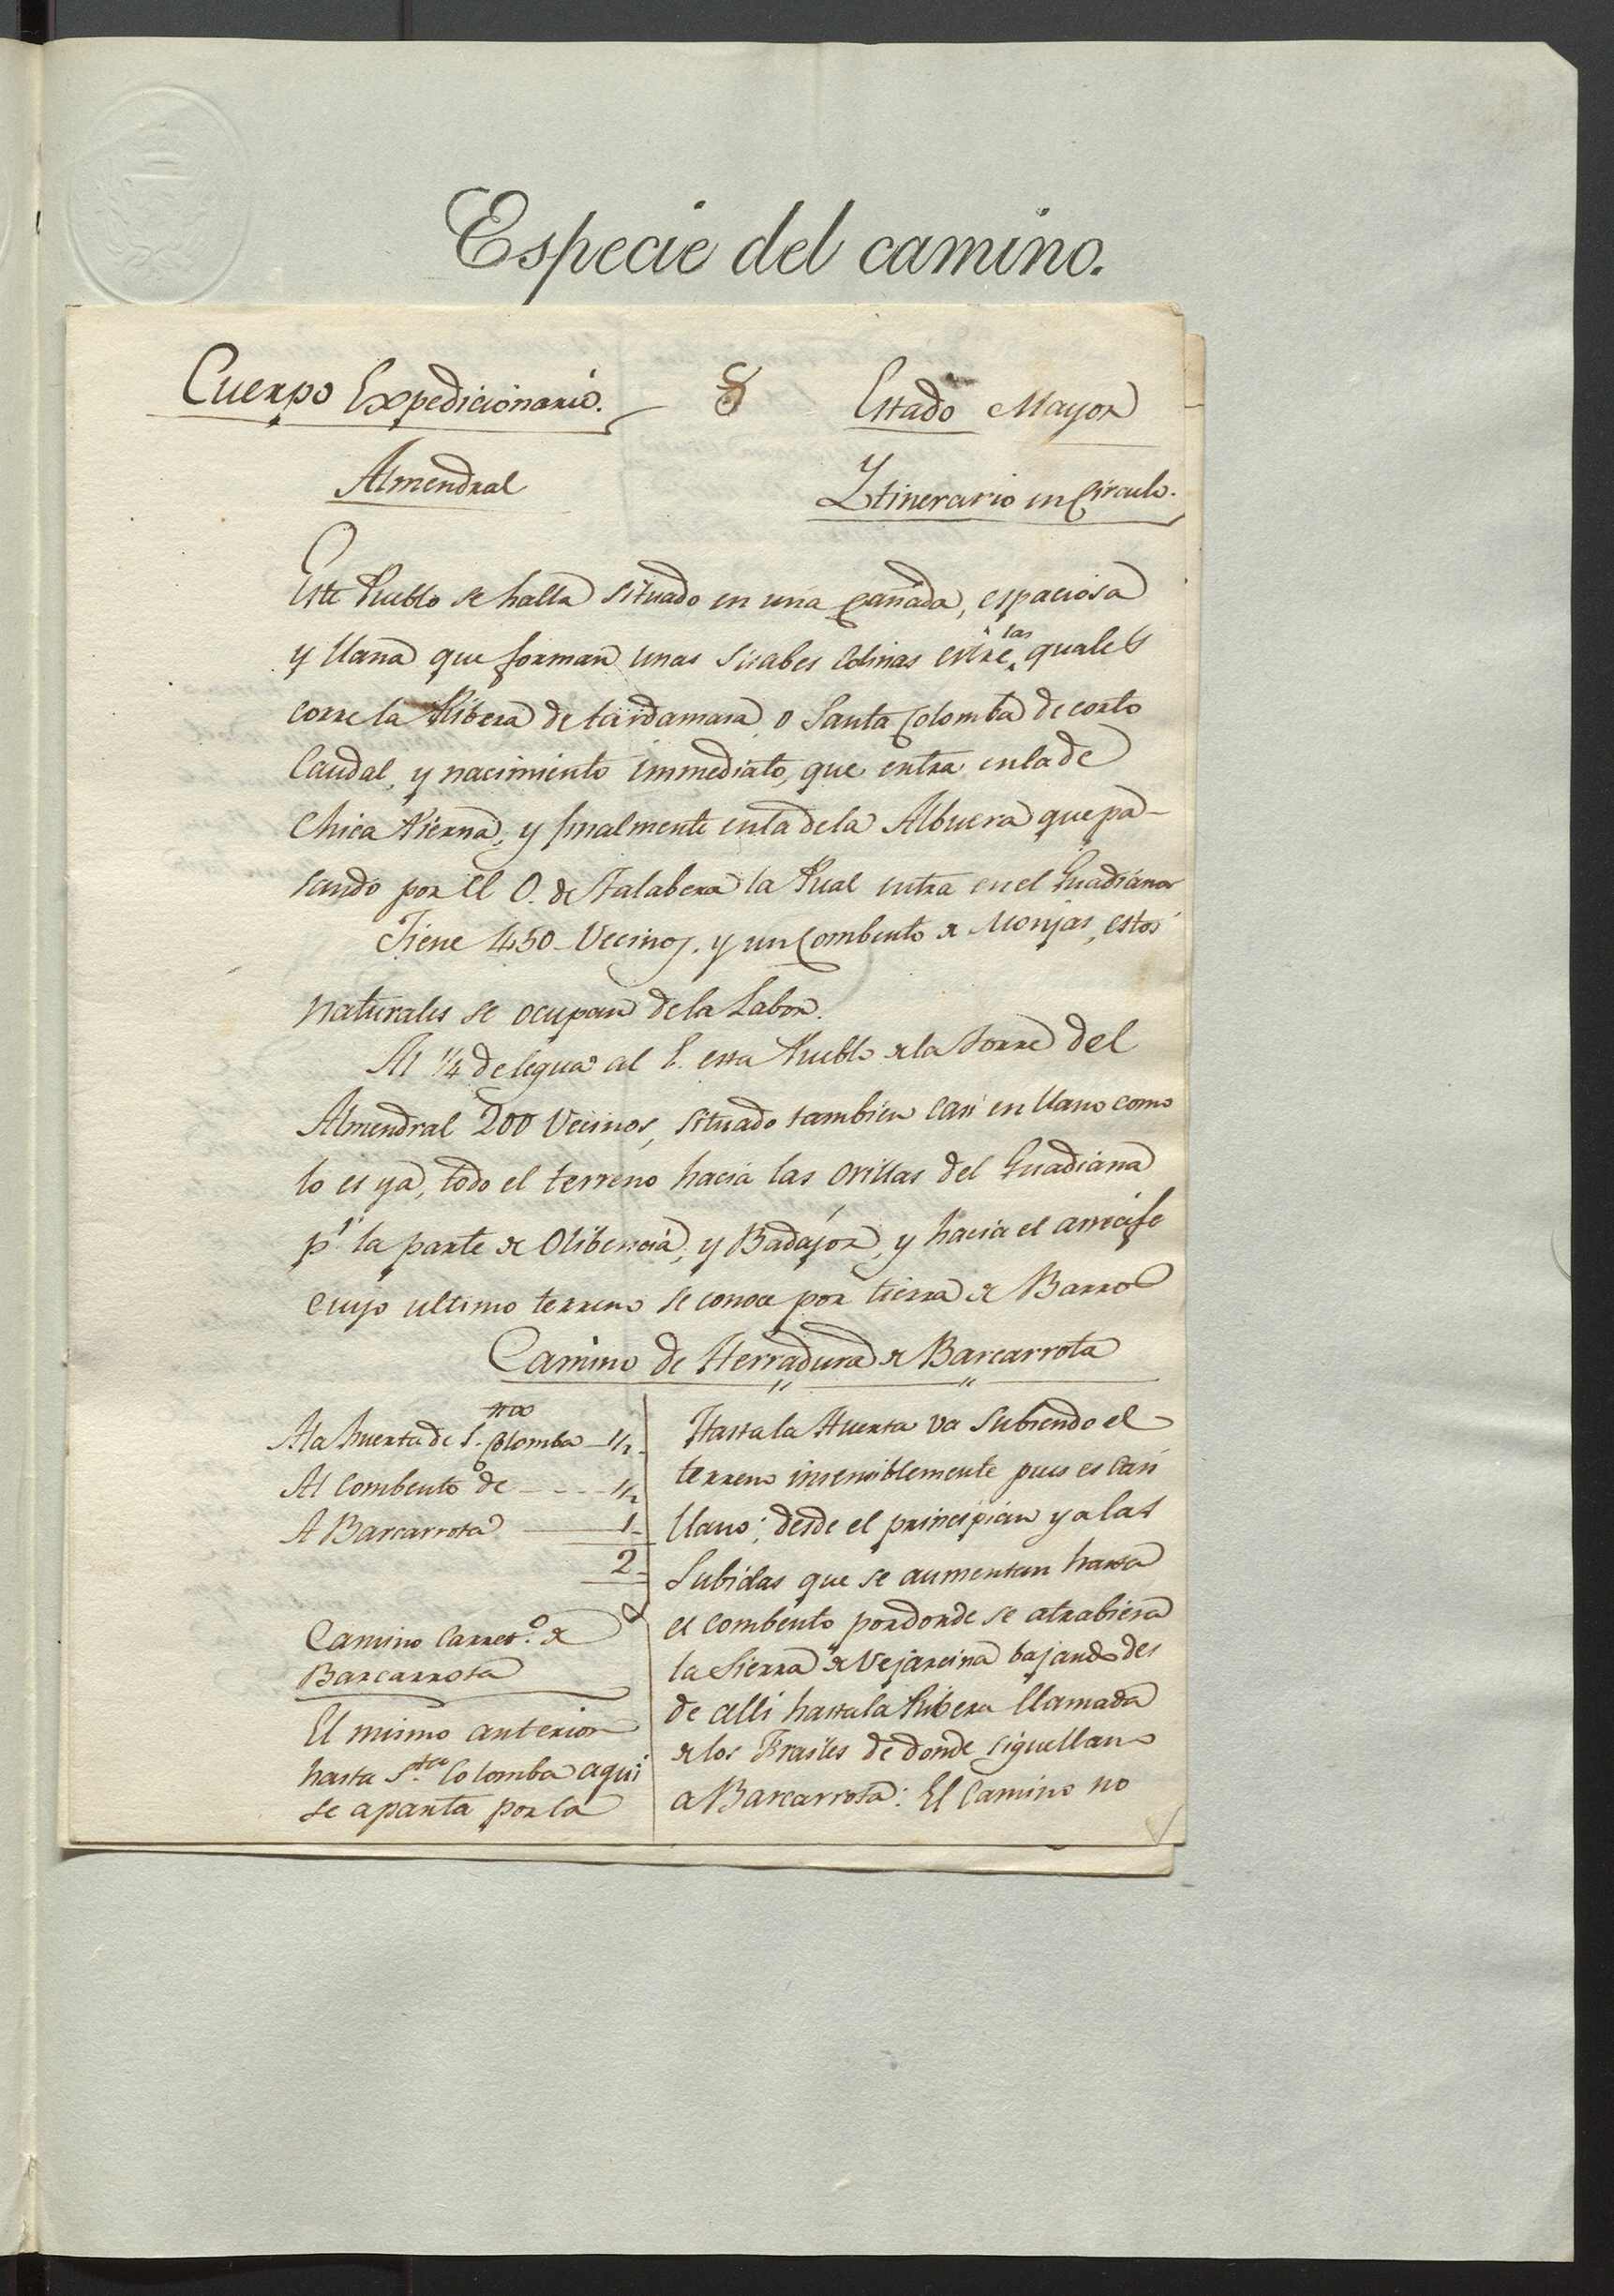 Especie del camino.
Cuerpo Expedicionario. 8 Estado Mayor
Almendral Ytinerario en Circulo.
Este Pueblo se halla situado en una Cañada, espaciosa
y llana que forman unas suabes colinas entre las quales
corre la Ribera de o Santa Colomba de corto
Caudal, y nacimiento immediato, que entra en la de
Chica Pierna, y finalmente en la de la Albuera que pa-
sando por el O. de Talabera la Rual entra en el Guadiana
Tiene 450 Vecinos, y un Combento de Monjas, estos
naturales se ocupan de la Labor.
Al 1/4 de legua al E. esta Pueblo de la Torre del
Almendral 200 Vecinos, situado tambien casi en llano como
lo es ya, todo el terreno hacia las orillas del Guadiana
pr. la parte de Olibencia, y Badajoz, y hacia el arrecife
cuyo ultimo terreno se conoce por tierra de Barro
Camino de Herradura de Barcarrota
A la huerta de S. Colomba 1/2
Al Combento de 1/2
A Barcarrota 1
2
Camino Carret.o de
Barcarrota
El mismo anterior
hasta S.ta Colomba aqui
se aparta por la
Hasta la Huerta va subiendo el
terreno insensiblemente pues es casi
llano; desde el principian ya las
Subidas que se aumentan hasta
el combento por donde se atrabiesa
la Sierra de bajando des
de alli hasta la Ribera llamada
de los Frasiles de donde sigue llano
a Barcarrota: El Camino no